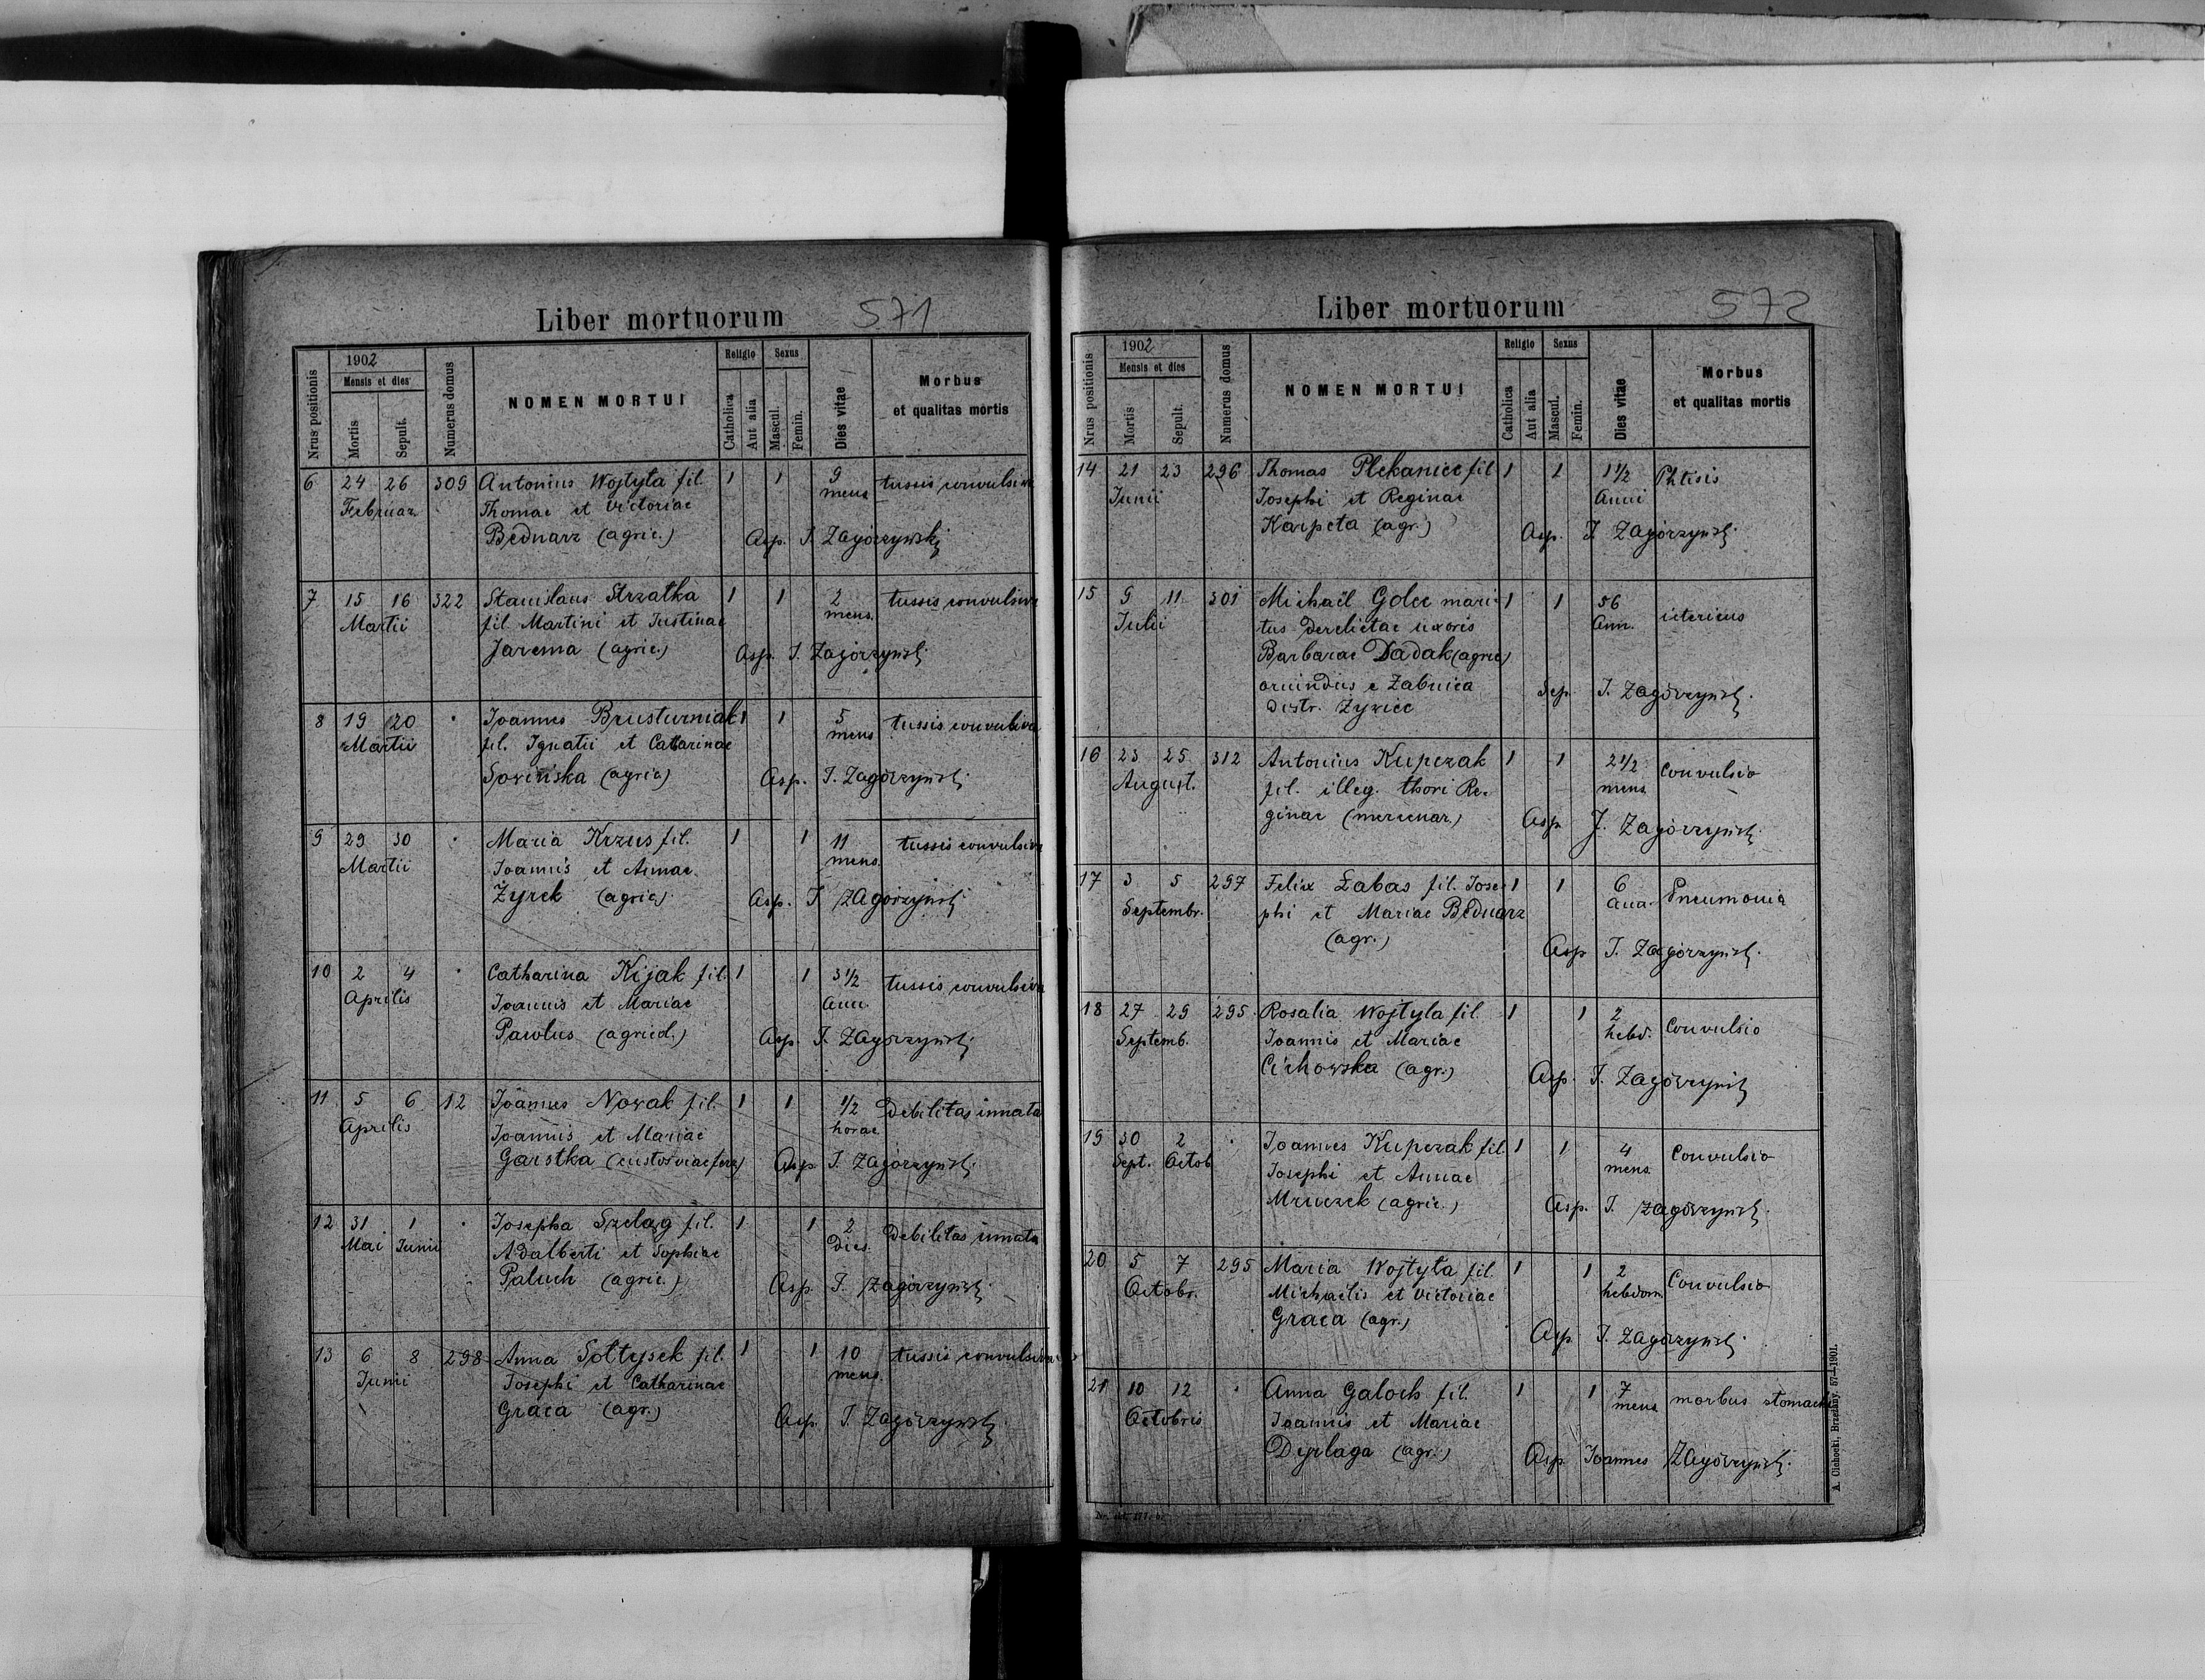 Liber mortuorum 571
Nrus positionis
1902
Mensis et dies
Mortis
Sepult.
Numerus domus
NOMEN MORTUI
Religio
Catholica
Aut alia
Sexus
Mascul.
Femin.
Dies vitae
Morbus
et qualitas mortis
6 24 26 309 Antonius Wojtyła fil. 1 1 9 tussis convulsiva
Februar. Thomae et Victoriae mens
Bednarz (agric.) Asp. J. Zagórzyński
7 15 16 322 Stanislaus Strzałka 1 1 2 tussis convulsiva
Martii fil. Martini et Justinae mens.
Jarema (agric.) Asp. J. Zagórzyński
8 19 20 " Joannes Brusturniak 1 1 5 tussis convulsiva
Martii fil. Ignatii et Catharinae mens
Sowińska (agric) Asp. J. Zagórzyński
9 29 30 " Maria Krzus fil. 1 1 11 tussis convulsiva
Martii Joannis et Annae mens.
Żyrek (agric) Asp. J. Zagórzyński
10 2 4 " Catharina Kijak fil. 1 1 3 1/2 tussis convulsiva
Aprilis Joannis et Mariae ann.
Pawlus (agricol.) Asp. J. Zagórzyński
11 5 6 12 Joannes Nowak fil. 1 1 1/2 Debilitas innata
Aprilis Joannis et Mariae horae
Garstka (custos viae ferr.) Asp. J. Zagórzyński
12 31 1 " Josepha Szeląg fil. 1 1 2 Debilitas innata
Mai Junii Adalberti et Sophiae Dies.
Paluch (agric.) Asp. J. Zagórzyński
13 6 8 298 Anna Sołtysek fil. 1 1 10 tussis convulsiva
Junii Josephi et Catharinae mens.
Graca (agr.) Asp. J. Zagórzyński
Liber mortuorum 572
Nrus positionis
1902
Mensis et dies
Mortis
Sepult.
Numerus domus
NOMEN MORTUI
Religio
Catholica
Aut alia
Sexus
Mascul.
Femin.
Dies vitae
Morbus
et qualitas mortis
14 21 23 296 Thomas Plekaniec fil 1 1 1 1/2 Phtisis
Junii Josephi et Reginae Anni
Karpeta (agr.) Asp. J. Zagórzyński
15 9 11 301 Michaël Golec mari- 1 1 56 ictericus
Julii tus derelictae uxoris Ann.
Barbarae Dadak (agric)
oriundus e Żabnica Sep. J. Zagórzyński.
distr. Żywiec
16 23 25 312 Antonius Kupczak 1 1 2 1/2 Convulsio
August. fil. illeg. thori Re- mens.
ginae (mercenar.) Asp. J. Zagórzyński
17 3 5 297 Felix Łabas fil. Jose- 1 1 6 Pneumonia
Septembr. phi et Mariae Bednarz ann.
(agr.) Asp J. Zagórzyński.
18 27 29 295 Rosalia Wojtyła fil. 1 1 2 Convulsio
Septemb. Joannis et Mariae hebd.
Cichowska (agr.) Asp. J. Zagórzyński
19 30 2 " Joannes Kupczak fil. 1 1 4 Convulsio
Sept. Octob. Josephi et Annae mens.
Mruczek (agric.) Asp. J. Zagórzyński.
20 5 7 295 Maria Wojtyła fil. 1 1 2 Convulsio
Octobr. Michaëlis et Victoriae hebdom.
Graca (agr.) Asp. J. Zagórzyński.
21 10 12 " Anna Galoch fil. 1 1 7 morbus stomachi
Octobris Joannis et Mariae mens
Dyrlaga (agr.) Asp. Joannes Zagórzyński.
A. Cichocki, Brzeżany. 57—1901.